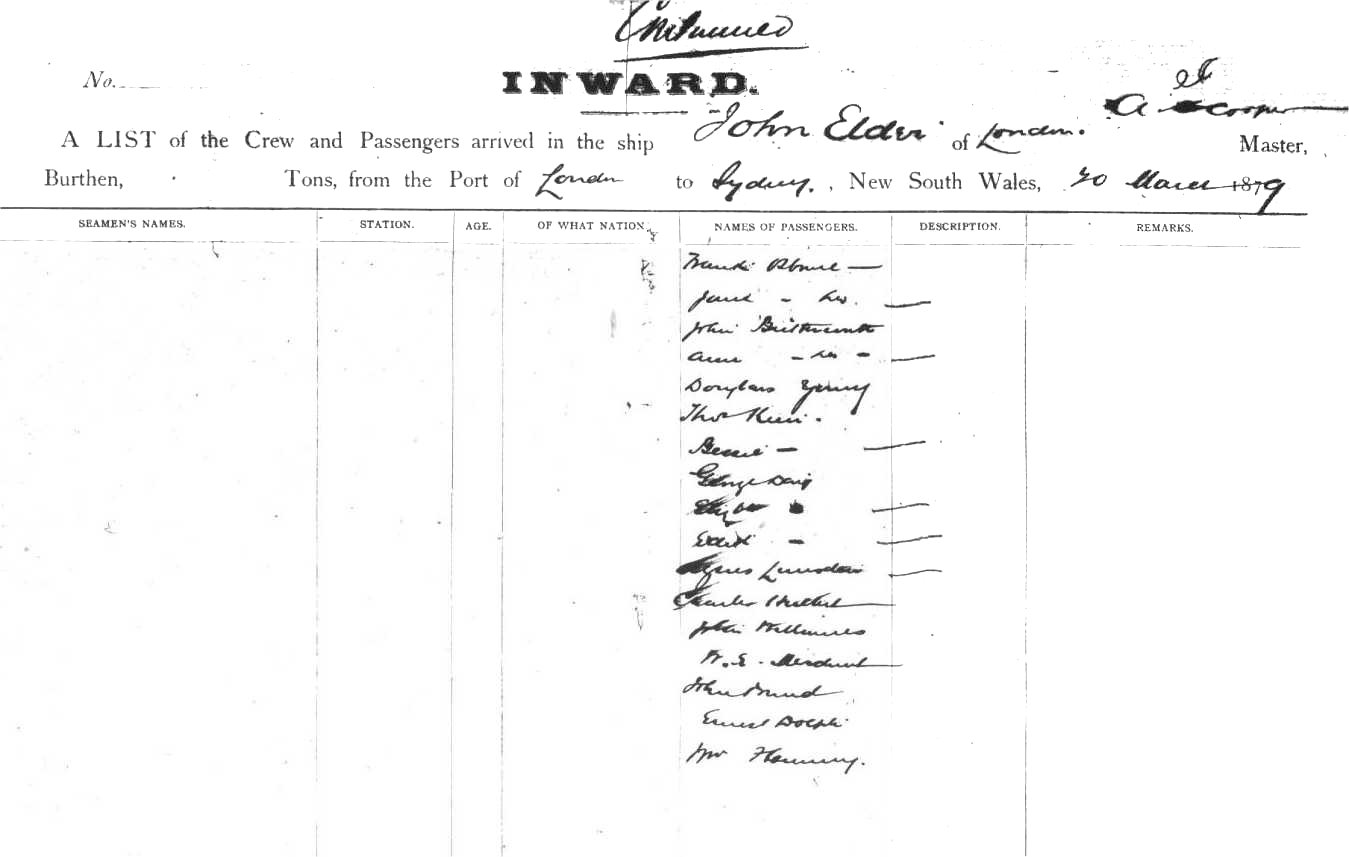 Continued
INWARD.
No.
A LIST of the Crew and Passengers arrived in the ship John Elder of London. A Cooper Master,
Burthen, Tons, from the Port of London to Sydney, New South Wales, 20 March 1879
SEAMEN'S NAMES. STATION. AGE. OF WHAT NATION. NAMES OF PASSENGERS. DESCRIPTION. REMARKS.
Jane -
John
Ann - -
Douglas Young
Thos
Bessie -
George
Edith -
Agnes Lumsden
Charles
John Williams
W. E.
John
Ernest
Flemming.